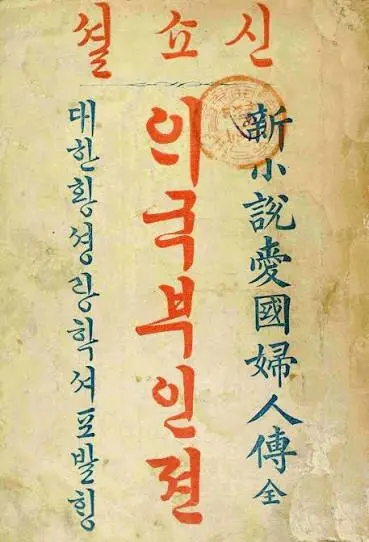 신쇼셜
新小說愛國婦人傳 全
ᄋᆡ국부인젼
대한황셩광학셔포발ᄒᆡᆼ